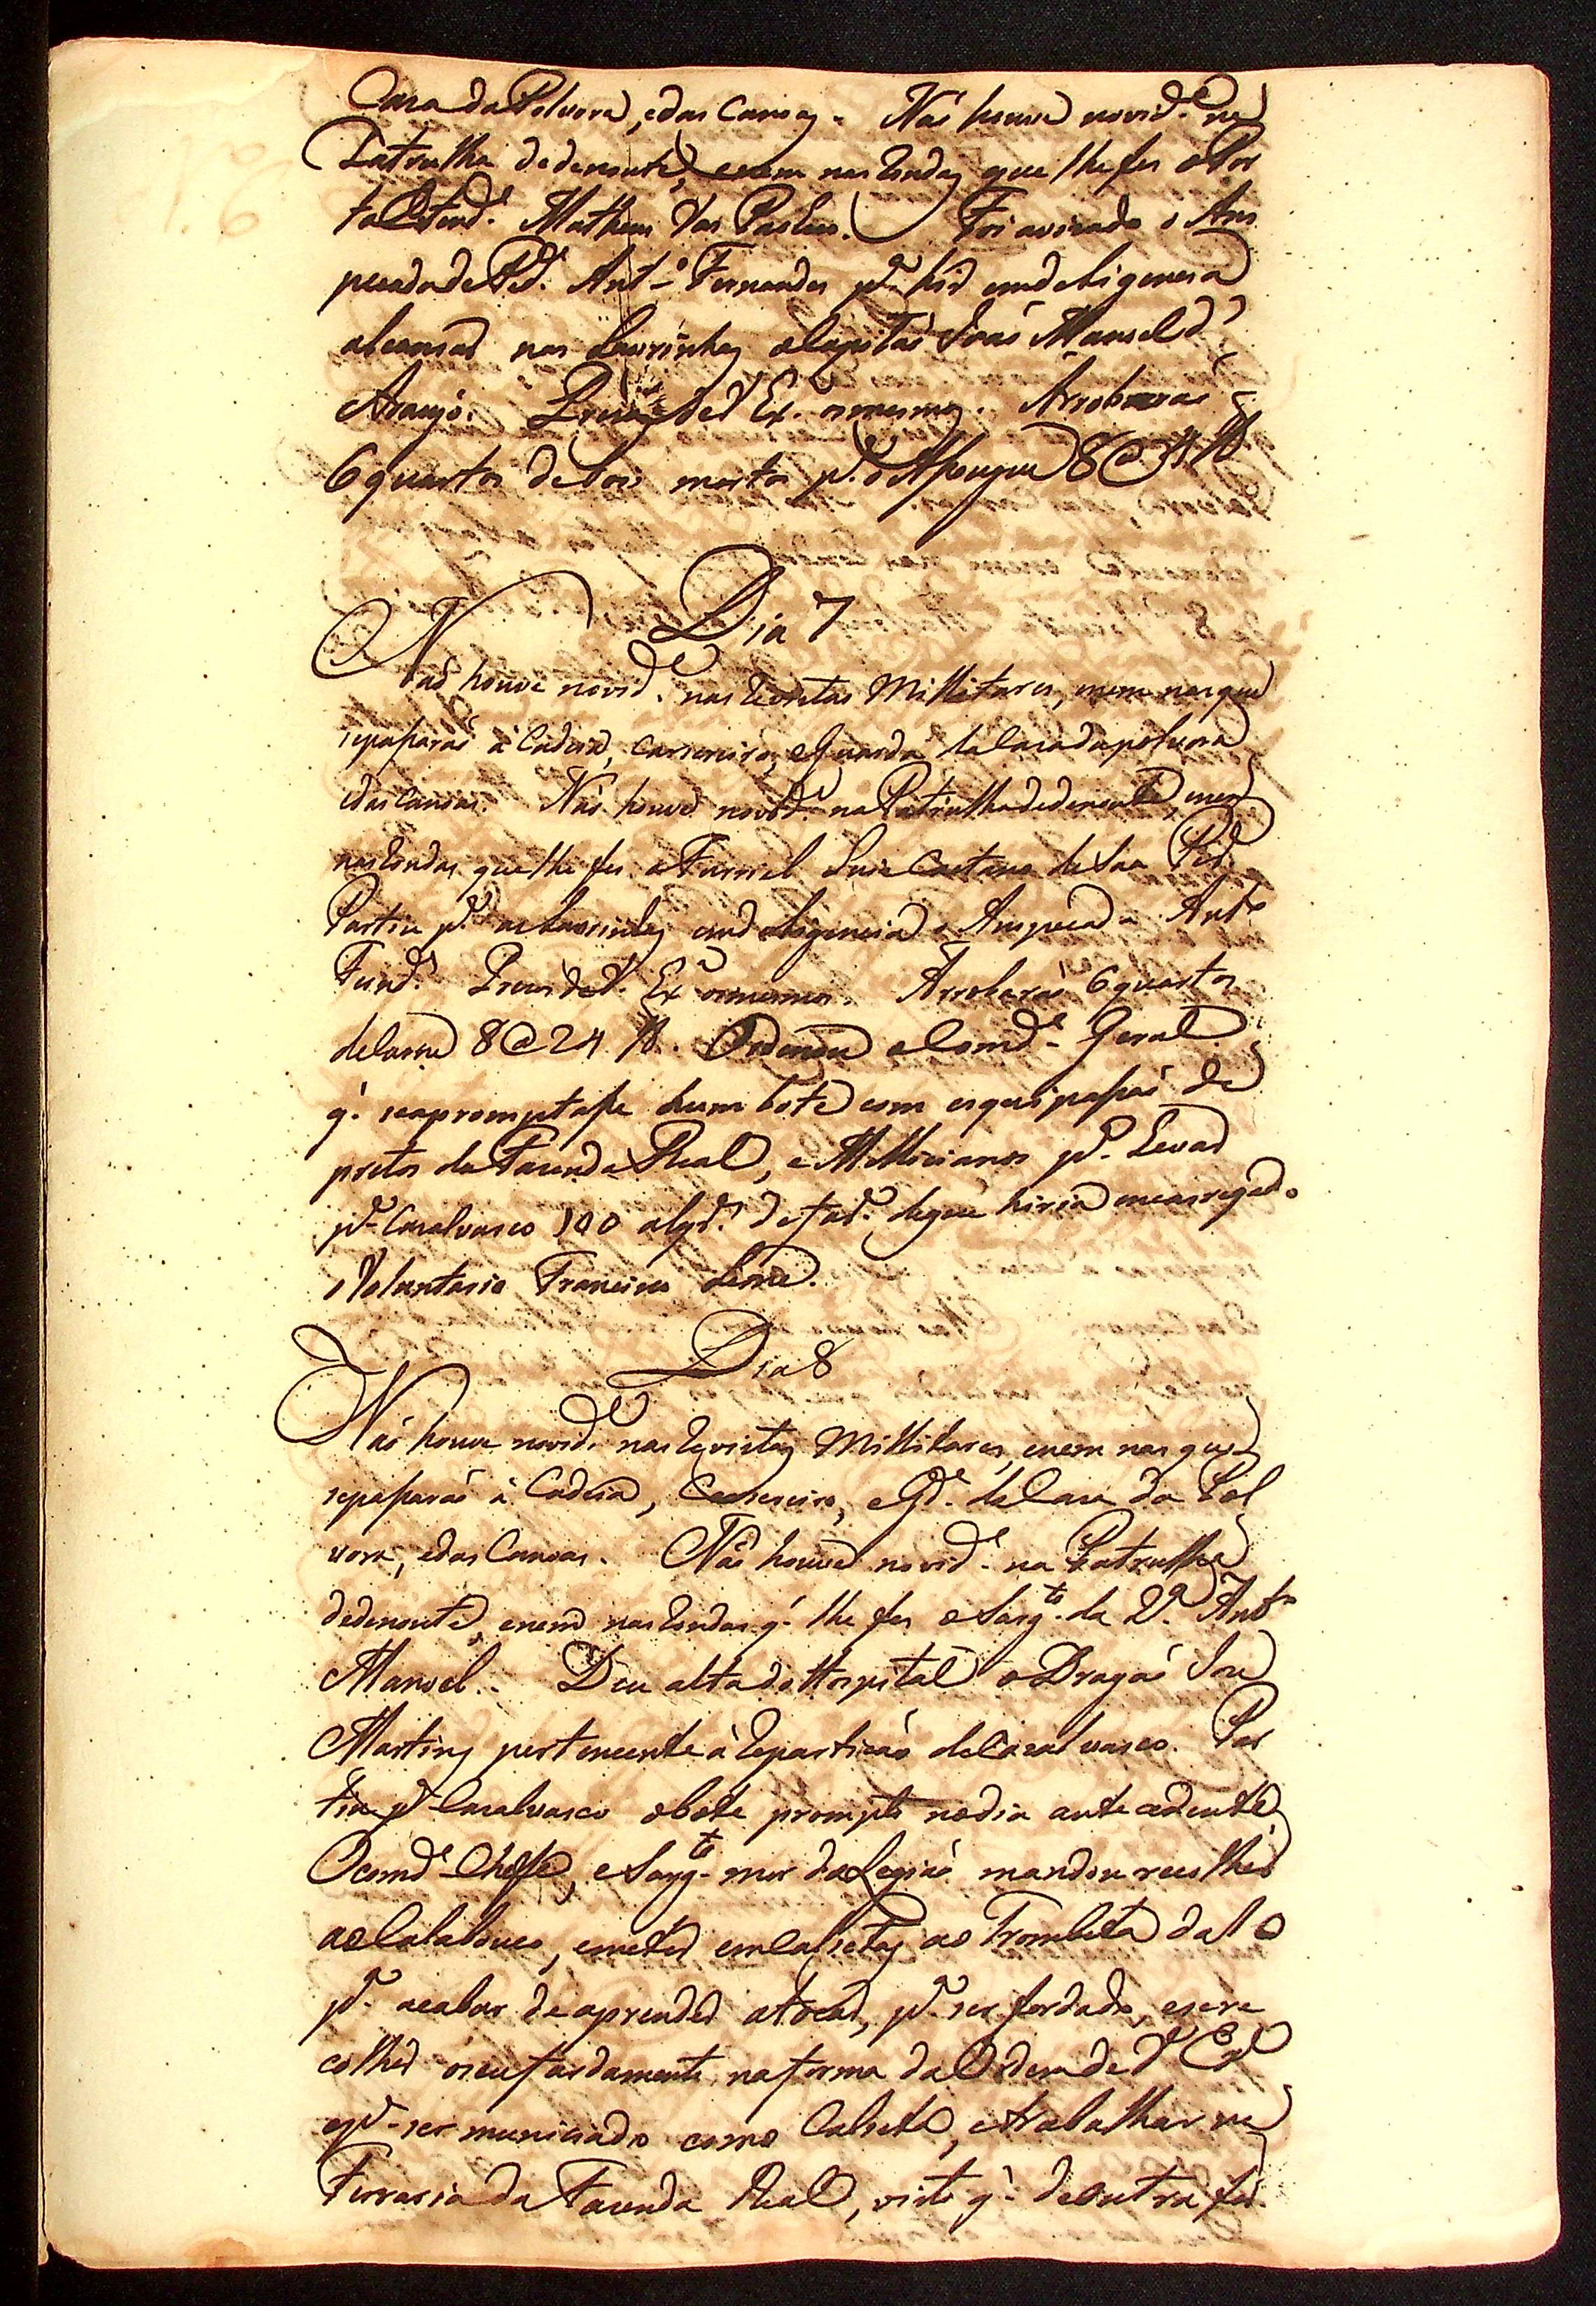 Casa da Polvora, e das Canoas. Não houve novid.e na
Patrulha dedenoute, enem nas Rondas que lhe fes o Por
ta Estend.e Matheus Vas Pacheco. Foi avizado o Ans
pecada de Ped. Ant.o Fernandes p.a hir em deligencia
alcansar nas Lavrinhas o Capitão João Manoel d'
Araujo. Prezos de V. Ex. os mesmos. Arrobarão
6 quartos de bois mortos p.a o Asougue 8 @
Dia 7
Não houve novid.e nas Revistas Millitares, enem nas que
sepasarão à Cadeia, Carsereiro, e Guarda da Casa da polvora
e das Canoas. Não houve novid.e na Patrulha dedenoute, enem
nas Rondas que lhe fes o Furriel Luis Caetano de Saa Ped.
Partiu p.a as Lavrinhas em deligencia o Anspecada Ant.o
Fernd.s Prezos de V. Ex.a os mesmos. Arrobarão 6 quartos
de Carne 8 @ 24 lb. Ordenou o Comd.e Geral
q.' seapromptase hum bote com esquipasão de
pretos da Fazenda Real, e Milicianos p.a Levar
p.a Casalvasco 100 alqr.s de far.a de que hiria encarregado
o Voluntario Francisco Leme.
Dia 8
Não houve novid.e nas Revistas Millitares, enem nas que
sepasarão à Cadeia, Carsereiro, e Gd.a da Casa da Pol
vora, e das Canoas. Não houve novid.e na Patrulha
dedenoute, enem nas Rondas q.' lhe fes o Sarg.to da 2.a Ant.o
Manoel. Deu alta do Hospital o Dragão José
Martins pertencente à Repartisão de Casalvasco. Par
tiu p.a Casalvasco o bote prompto no dia antecedente.
O Comd.e Cheffe, e Sarg.to mor da Legião mandou recolher
ao Calabouco, e meter em Calsetas ao Trombeta da
p.a acabar de aprender a tocar, p.a ser fardado, e se re
colher o seu fardamento, na forma da Ordem de V. Ex.a
e p.a ser municiado como Calseta, e trabalhar na
Ferraria da Fazenda Real, visto q.' de outra for